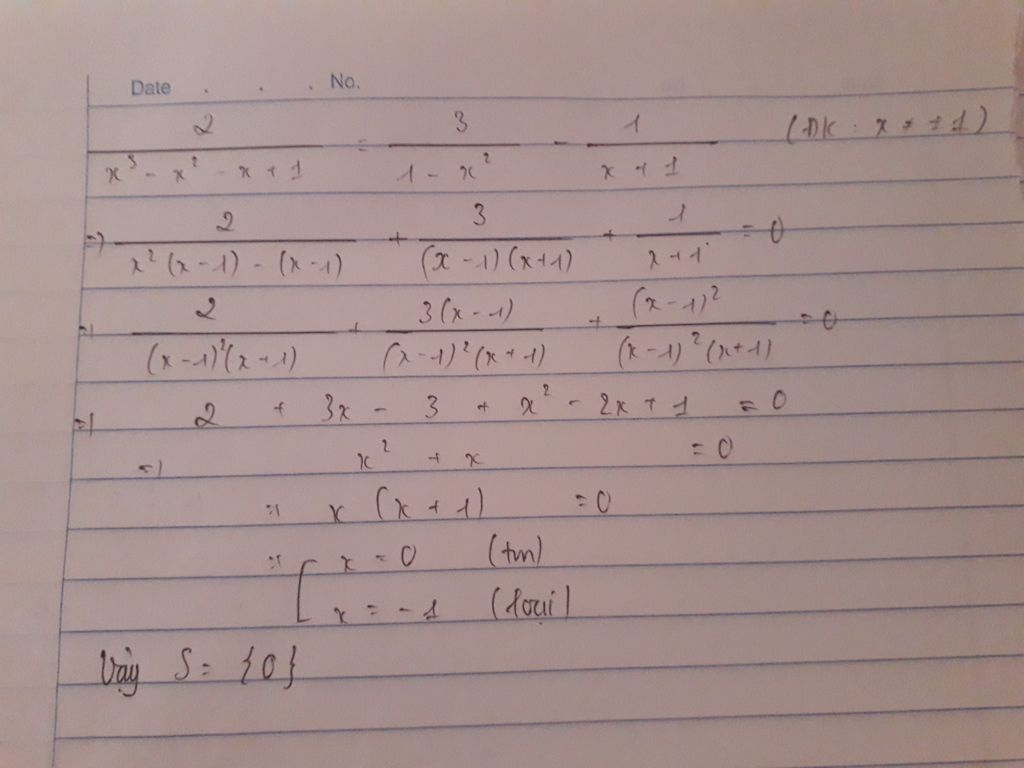 Date . . . No.
2/(x³ - x² - x + 1) = 3/(1 - x²) - 1/(x + 1) (ĐK : x ≠ ±1)
=> 2/(x²(x - 1) - (x - 1)) + 3/((x - 1)(x + 1)) + 1/(x + 1) = 0
=> 2/((x - 1)²(x + 1)) + 3(x - 1)/((x - 1)²(x + 1)) + (x - 1)²/((x - 1)²(x + 1)) = 0
=> 2 + 3x - 3 + x² - 2x + 1 = 0
=> x² + x = 0
=> x (x + 1) = 0
=> [ x = 0 (tm)
x = -1 (loại)
Vậy S = {0}